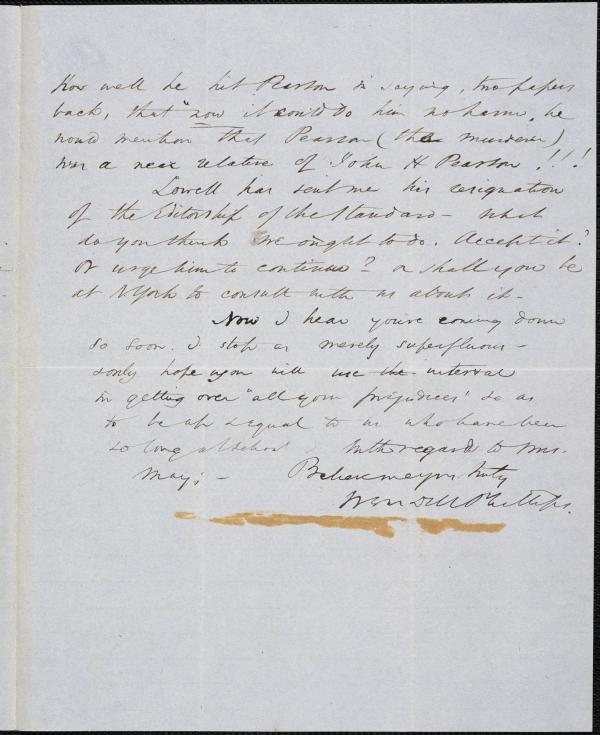 How well he hit Pearson in saying, two papers
back, that "now it could do him no harm, he
would mention that Pearson (the murderer)
was a near relative of John H Pearson!!!
Lowell has sent me his resignation
of the Editorship of the Standard - what
do you think we ought to do. Accept it?
Or urge him to continue? or shall you be
at N York to consult with us about it -
Now I hear you're coming down
so soon. I stop as merely superfluous -
& only hope you will use the interval
in getting over "all your prejudices" so as
to be up & equal to us who have been
so long at school. With regard to Mrs.
May; - Believe me yrs. truly
Wendell Phillips.